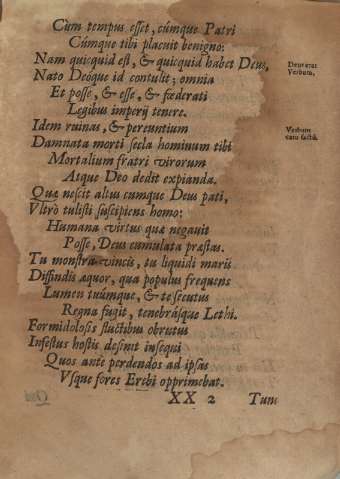 Cùm tempus esset, cúmque Patri
Cúmque tibi placuit benigno:
Nam quicquid est, & quicquid habet Deus,
Deus erat
Verbum.
Nato Deóque id contulit; omnia
Et posse, & esse, & fœderati
Legibus imperij tenere.
Idem ruinas, & pereuntium
Verbum
caro factũ.
Damnata morti secla hominum tibi
Mortalium fratri virorum
Atque Deo dedit expianda.
Quæ nescit altus cumque Deus pati,
Vltrò tulisti suscipiens homo:
Humana virtus quæ negauit
Posse, Deus cumulata præstas.
Tu monstra vincis, tu liquidi maris
Dissindis æquor, qua populus frequens
Lumen tuúmque, & te secutus
Regna fugit, tenebrásque Lethi.
Formidolosis fluctibus obrutus
Infestus hostis desinit insequi
Quos ante perdendos ad ipsas
Vsque fores Erebi opprimebat.
XX 2 Tunc